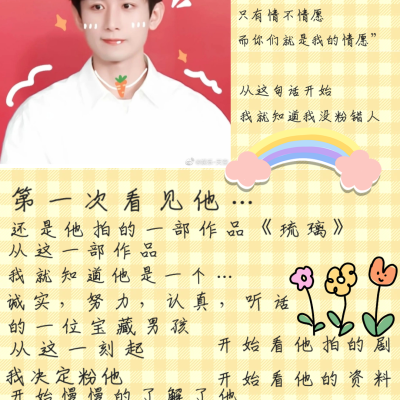 只有情不情愿
而你们就是我的情愿”
从这句话开始
我就知道我没粉错人
第一次看见他…
还是他拍的一部作品《琉璃》
从这一部作品
我就知道他是一个…
诚实,努力,认真,听话
的一位宝藏男孩
从这一刻起
开始看他拍的剧
我决定粉他
开始看他的资料
开始慢慢的了解了他